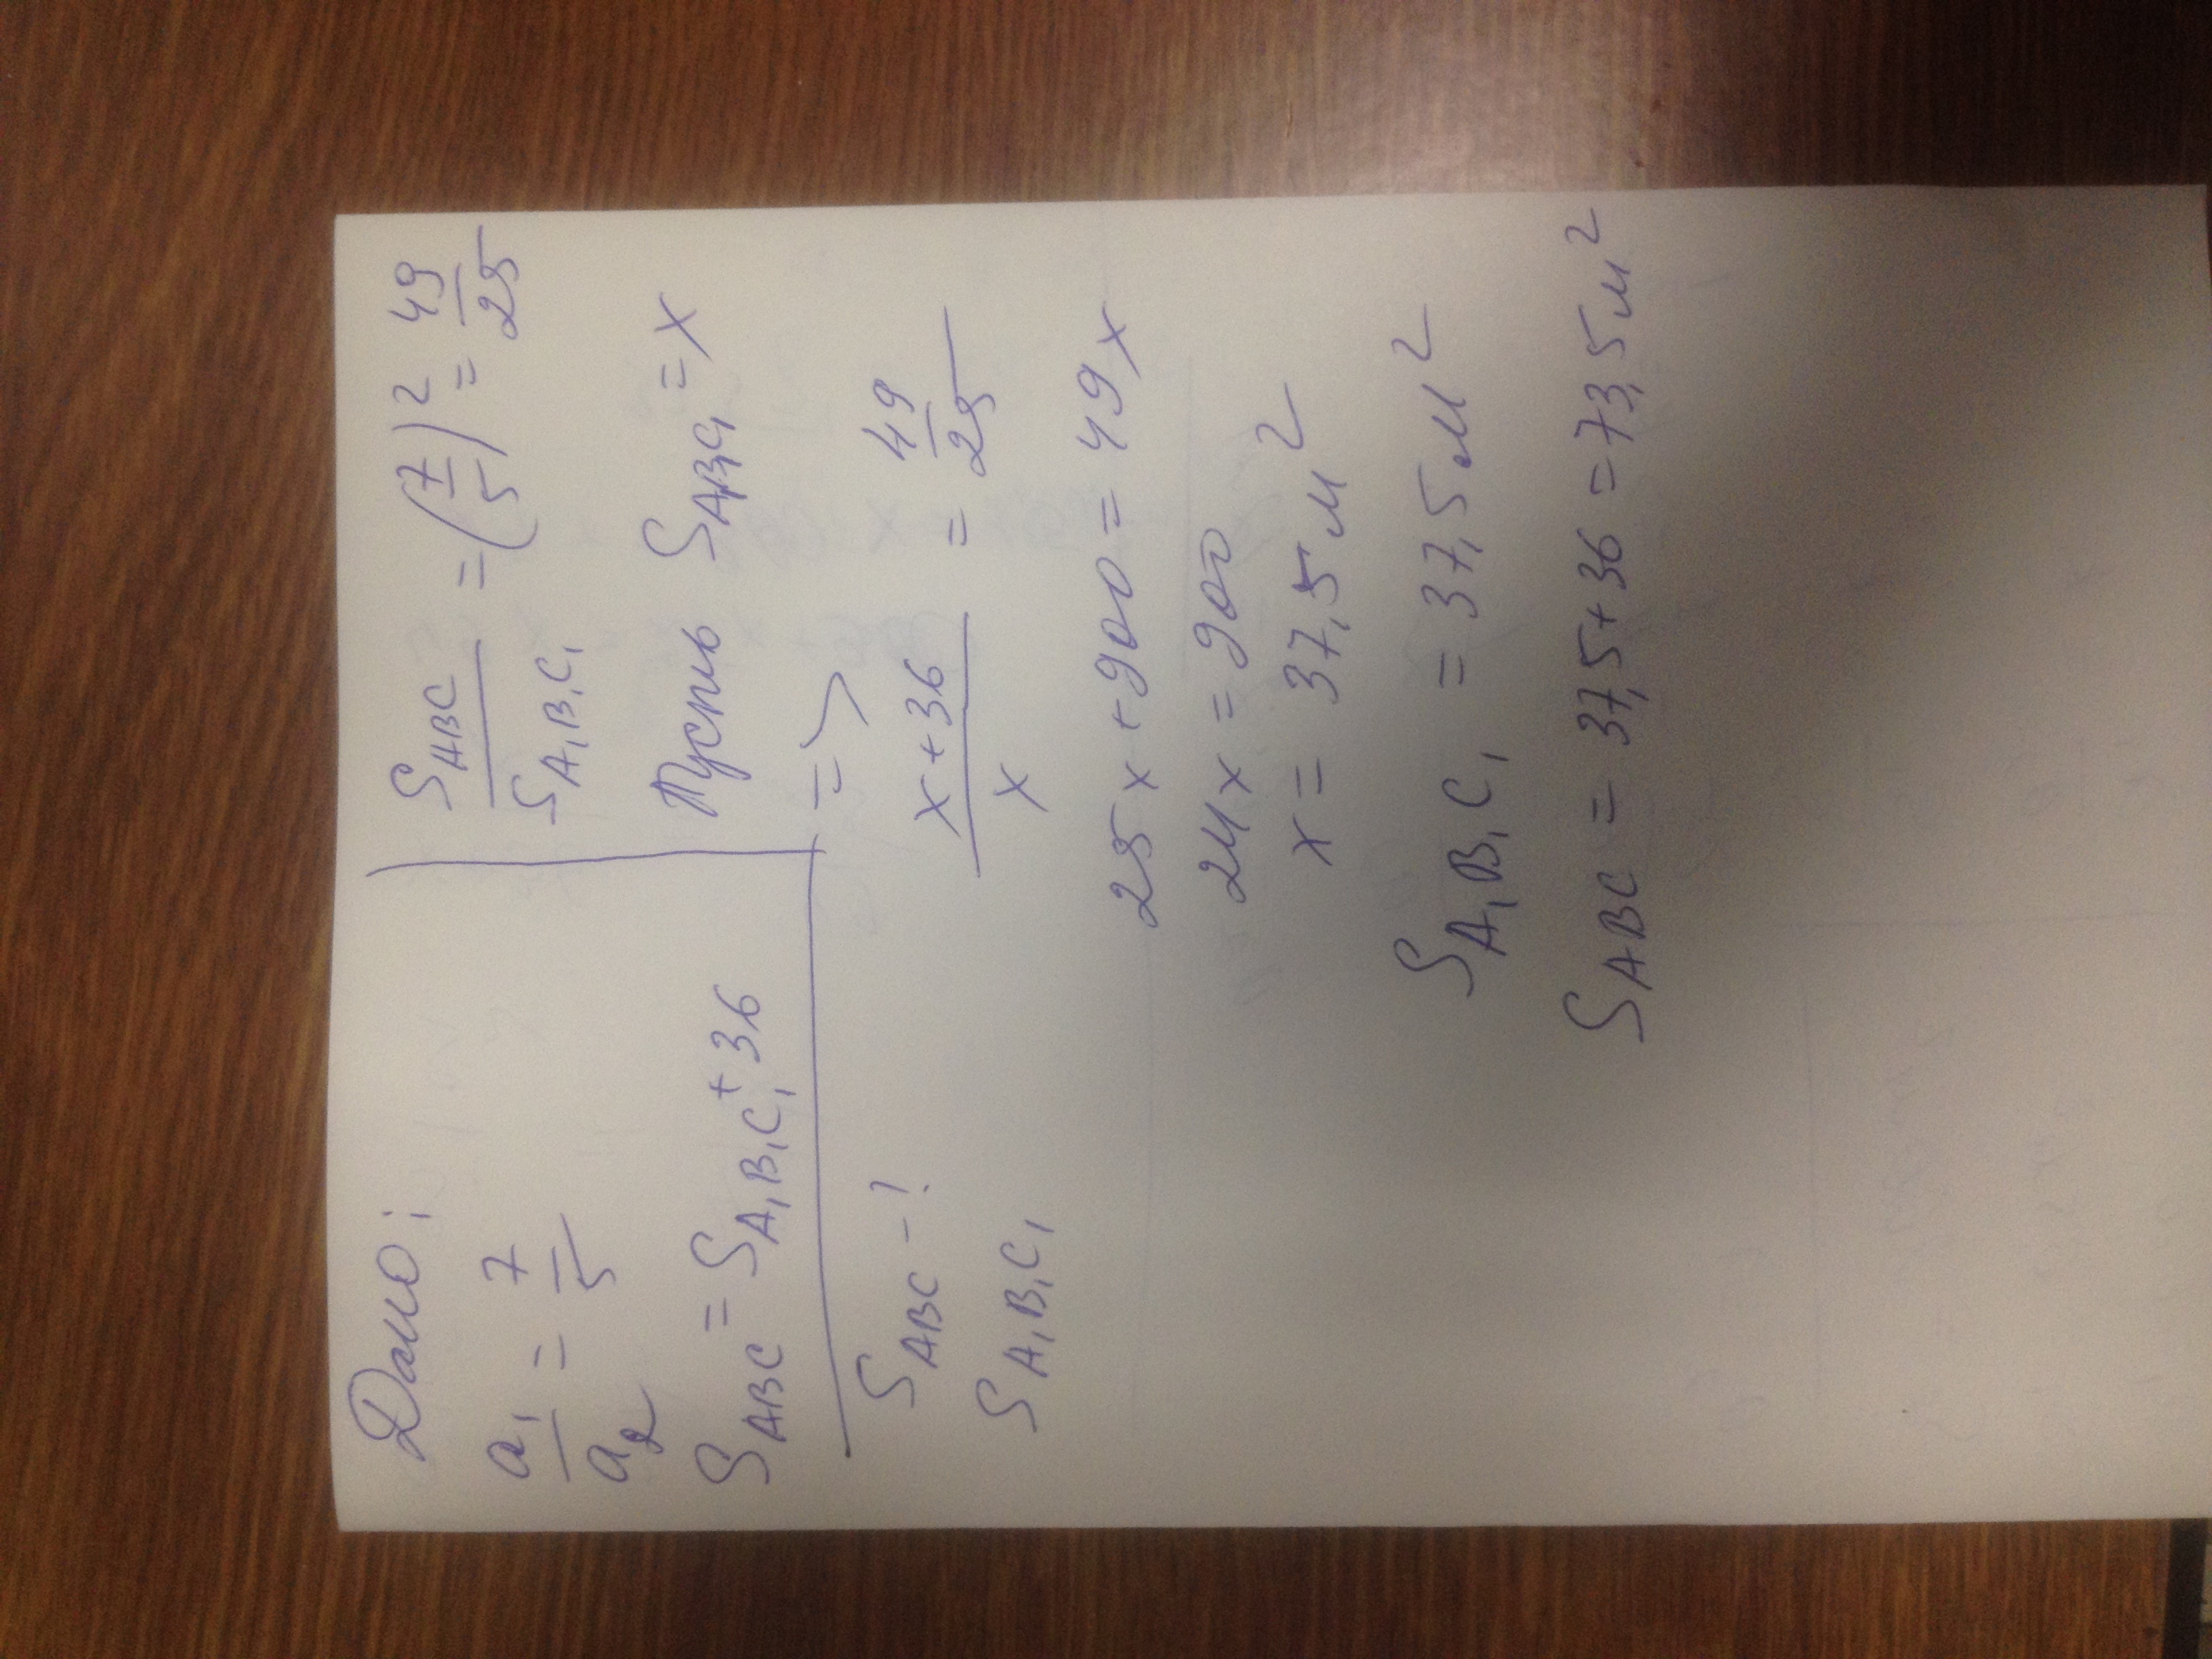 Дано:
a₁/a₂ = 7/5
S_ABC = S_A₁B₁C₁ + 36
S_ABC - ?
S_A₁B₁C₁
S_ABC/S_A₁B₁C₁ = (7/5)² = 49/25
Пусть S_A₁B₁C₁ = x
=>
(x+36)/x = 49/25
25x+900=49x
24x=900
x = 37,5 м²
S_A₁B₁C₁ = 37,5 м²
S_ABC = 37,5+36=73,5м²